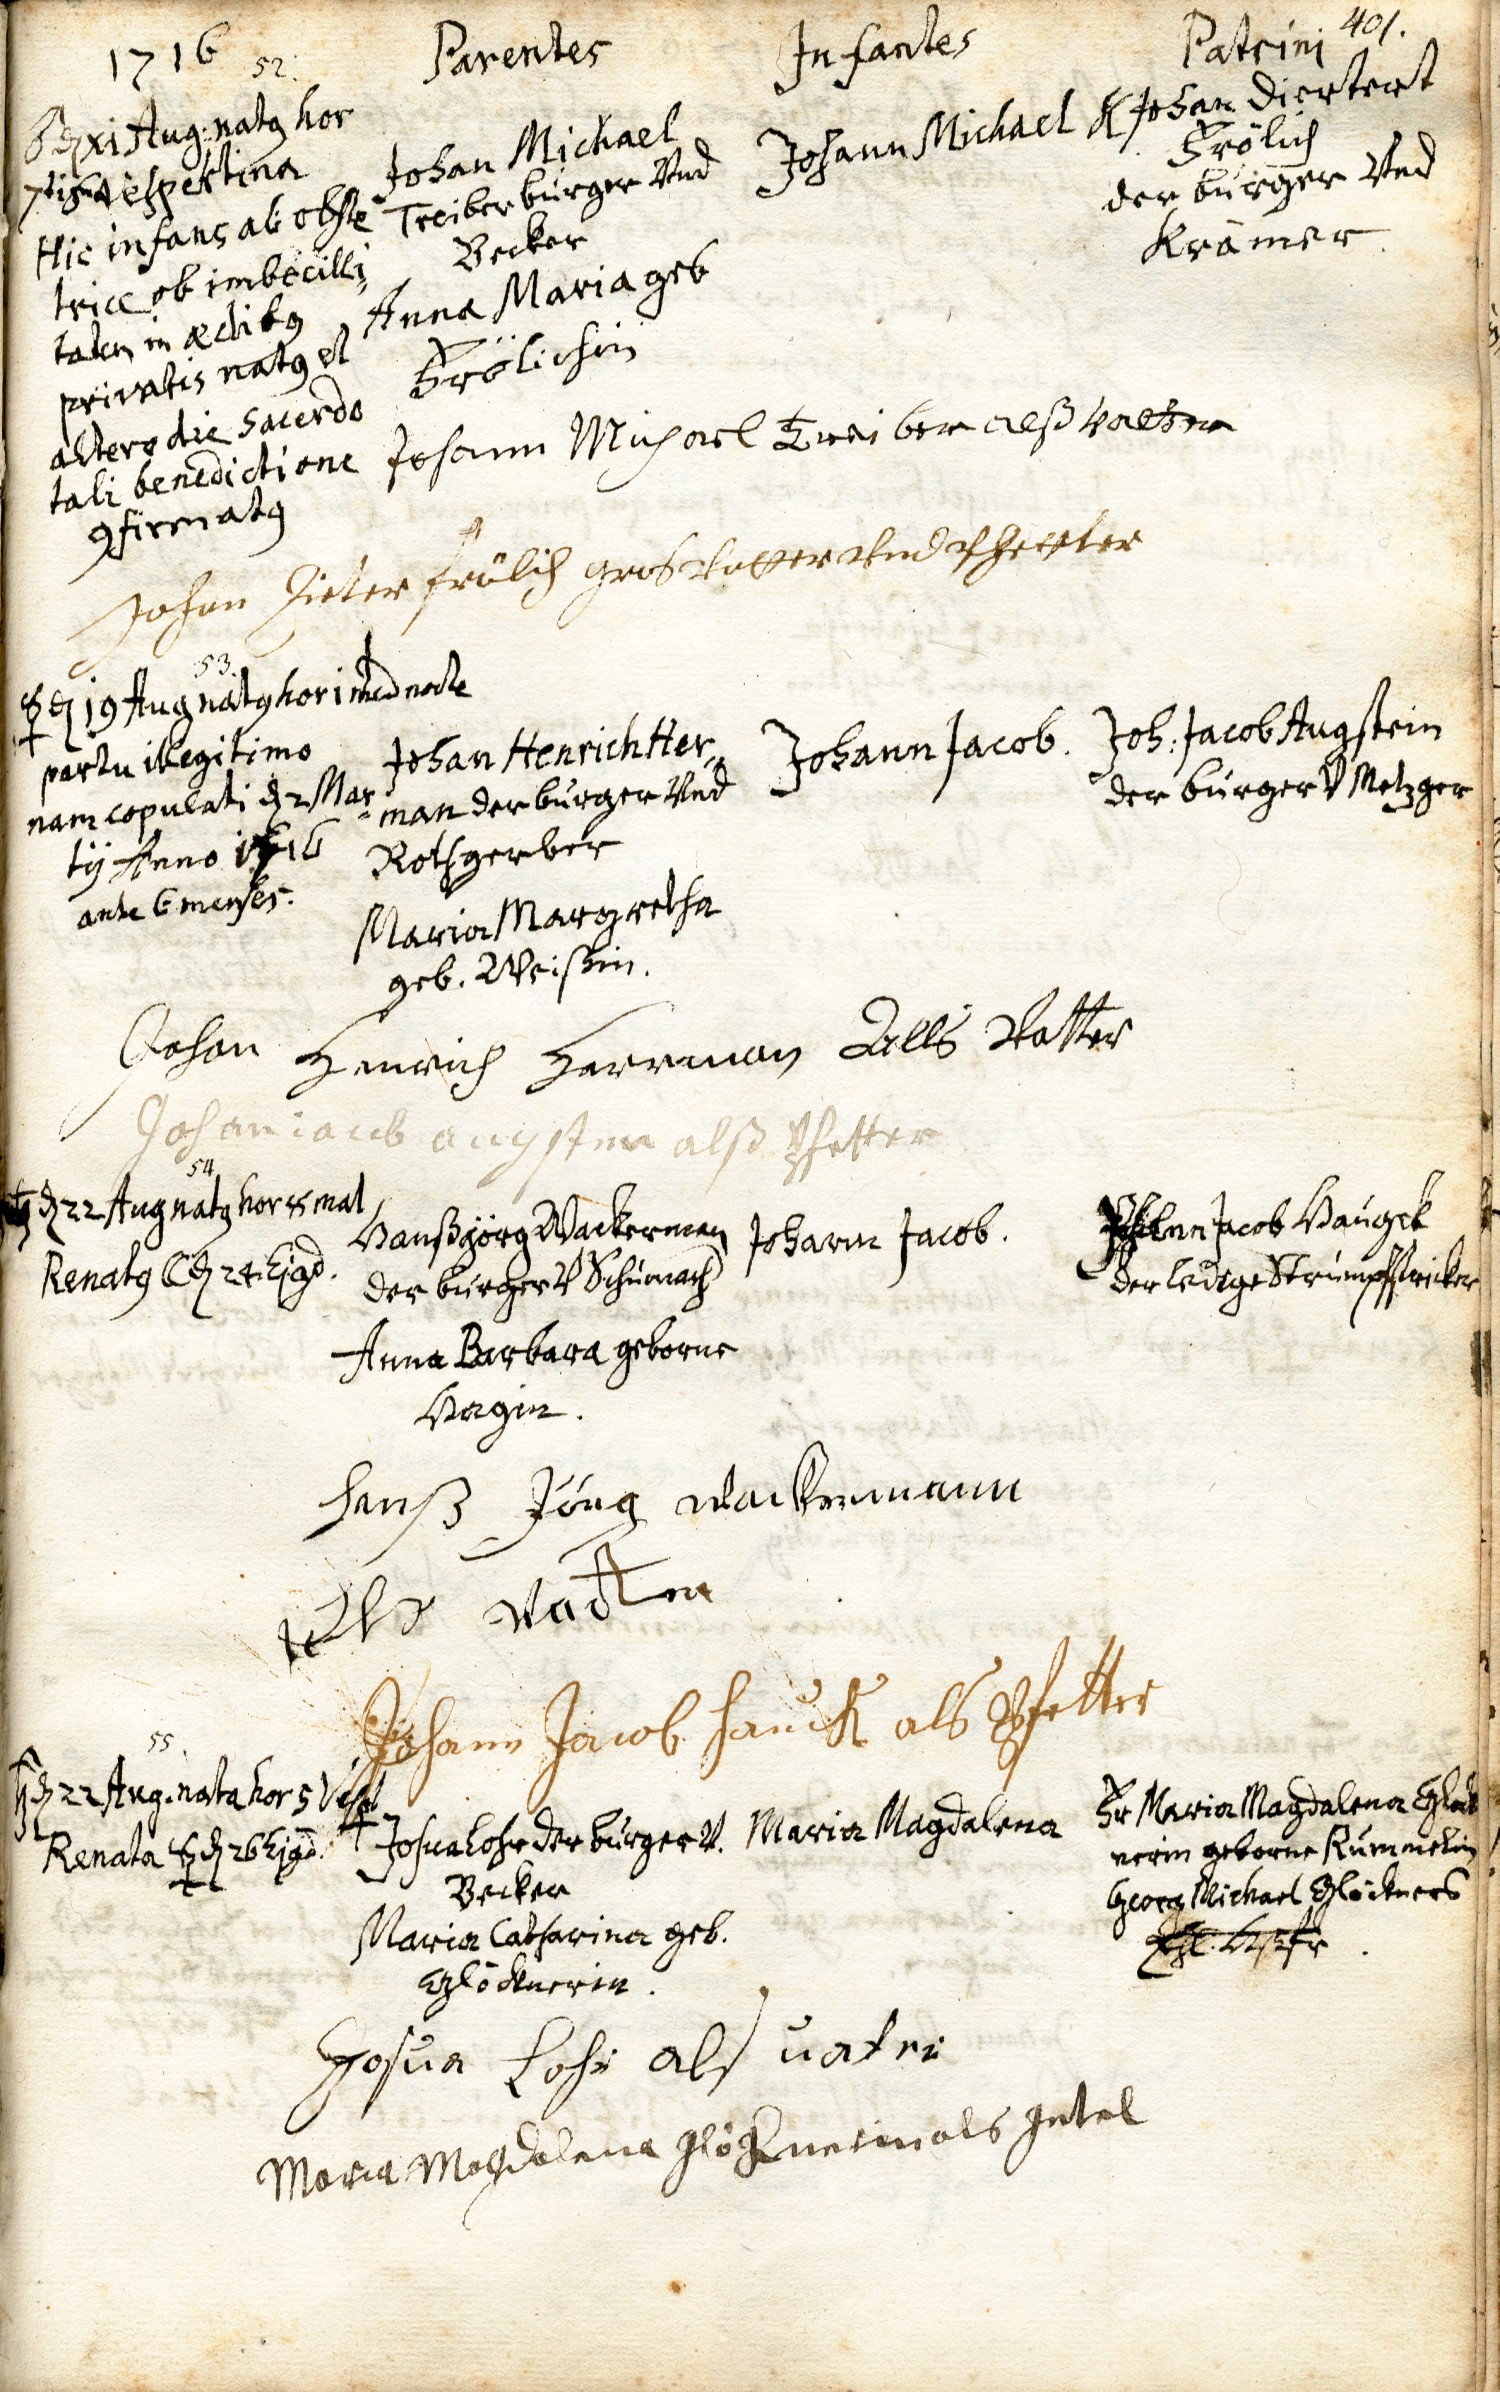 1716
Parentes
Infantes
Patrini
401.
52.
♂ d xi Aug: natg hor
vespertina
Hic infans ab obste
trice ob imbecilli,
tatem in ædibg
privatis natg et
altero die sacerdo
tali benedictione
9firmatg
Johan Michael
Treiber burger Vnd
Becker
Anna Maria geb
Frölichin
Johann Michael
Johan Diertert
Frölich
der burger Vnd
Krämer
Johann Michael Treiber alß Vatter
Johan Dieter frölich gros Vatter Vnd Pfetter
53.
d 19 Aug natg hor i med nocte
partu illegitimo
nam copulati d 2 Mar
tij Anno 1716
ante 6 menses.
Johan Henrich Her,,
=man der burger Vnd
Rothgerber
Maria Margretha
geb. Weißin.
Johann Jacob.
Joh: Jacob Augstein
der burger V Metzger
Johan Henrich Herrman Alls Vatter
Johan iacub augstein alß Pfetter
54
d 22 Aug natg hor 5 mat
Renatg d 24 ejgd.
Hanßjörg Wackerman
der burger V Schumach
Anna Barbara geborne
Hagin.
Johann Jacob.
Johann Jacob Haugck
der ledige Strümpffstricker
Hanß Jörg Wackermann
als Vatter
Johann Jacob Hauck als Pfetter
55
d 22 Aug. nata hor 5 Vesp
Renata d 26 ejgd.
Josua Lohr der burger V.
Becker
Maria Catharina geb.
Glöcknerin.
Maria Magdalena
Fr Maria Magdalena Glöck
nerin geborne Kümmelin
Georg Michael Glöckners
Josua Lohr als vater
Maria Magdalena glöcknerin als getel